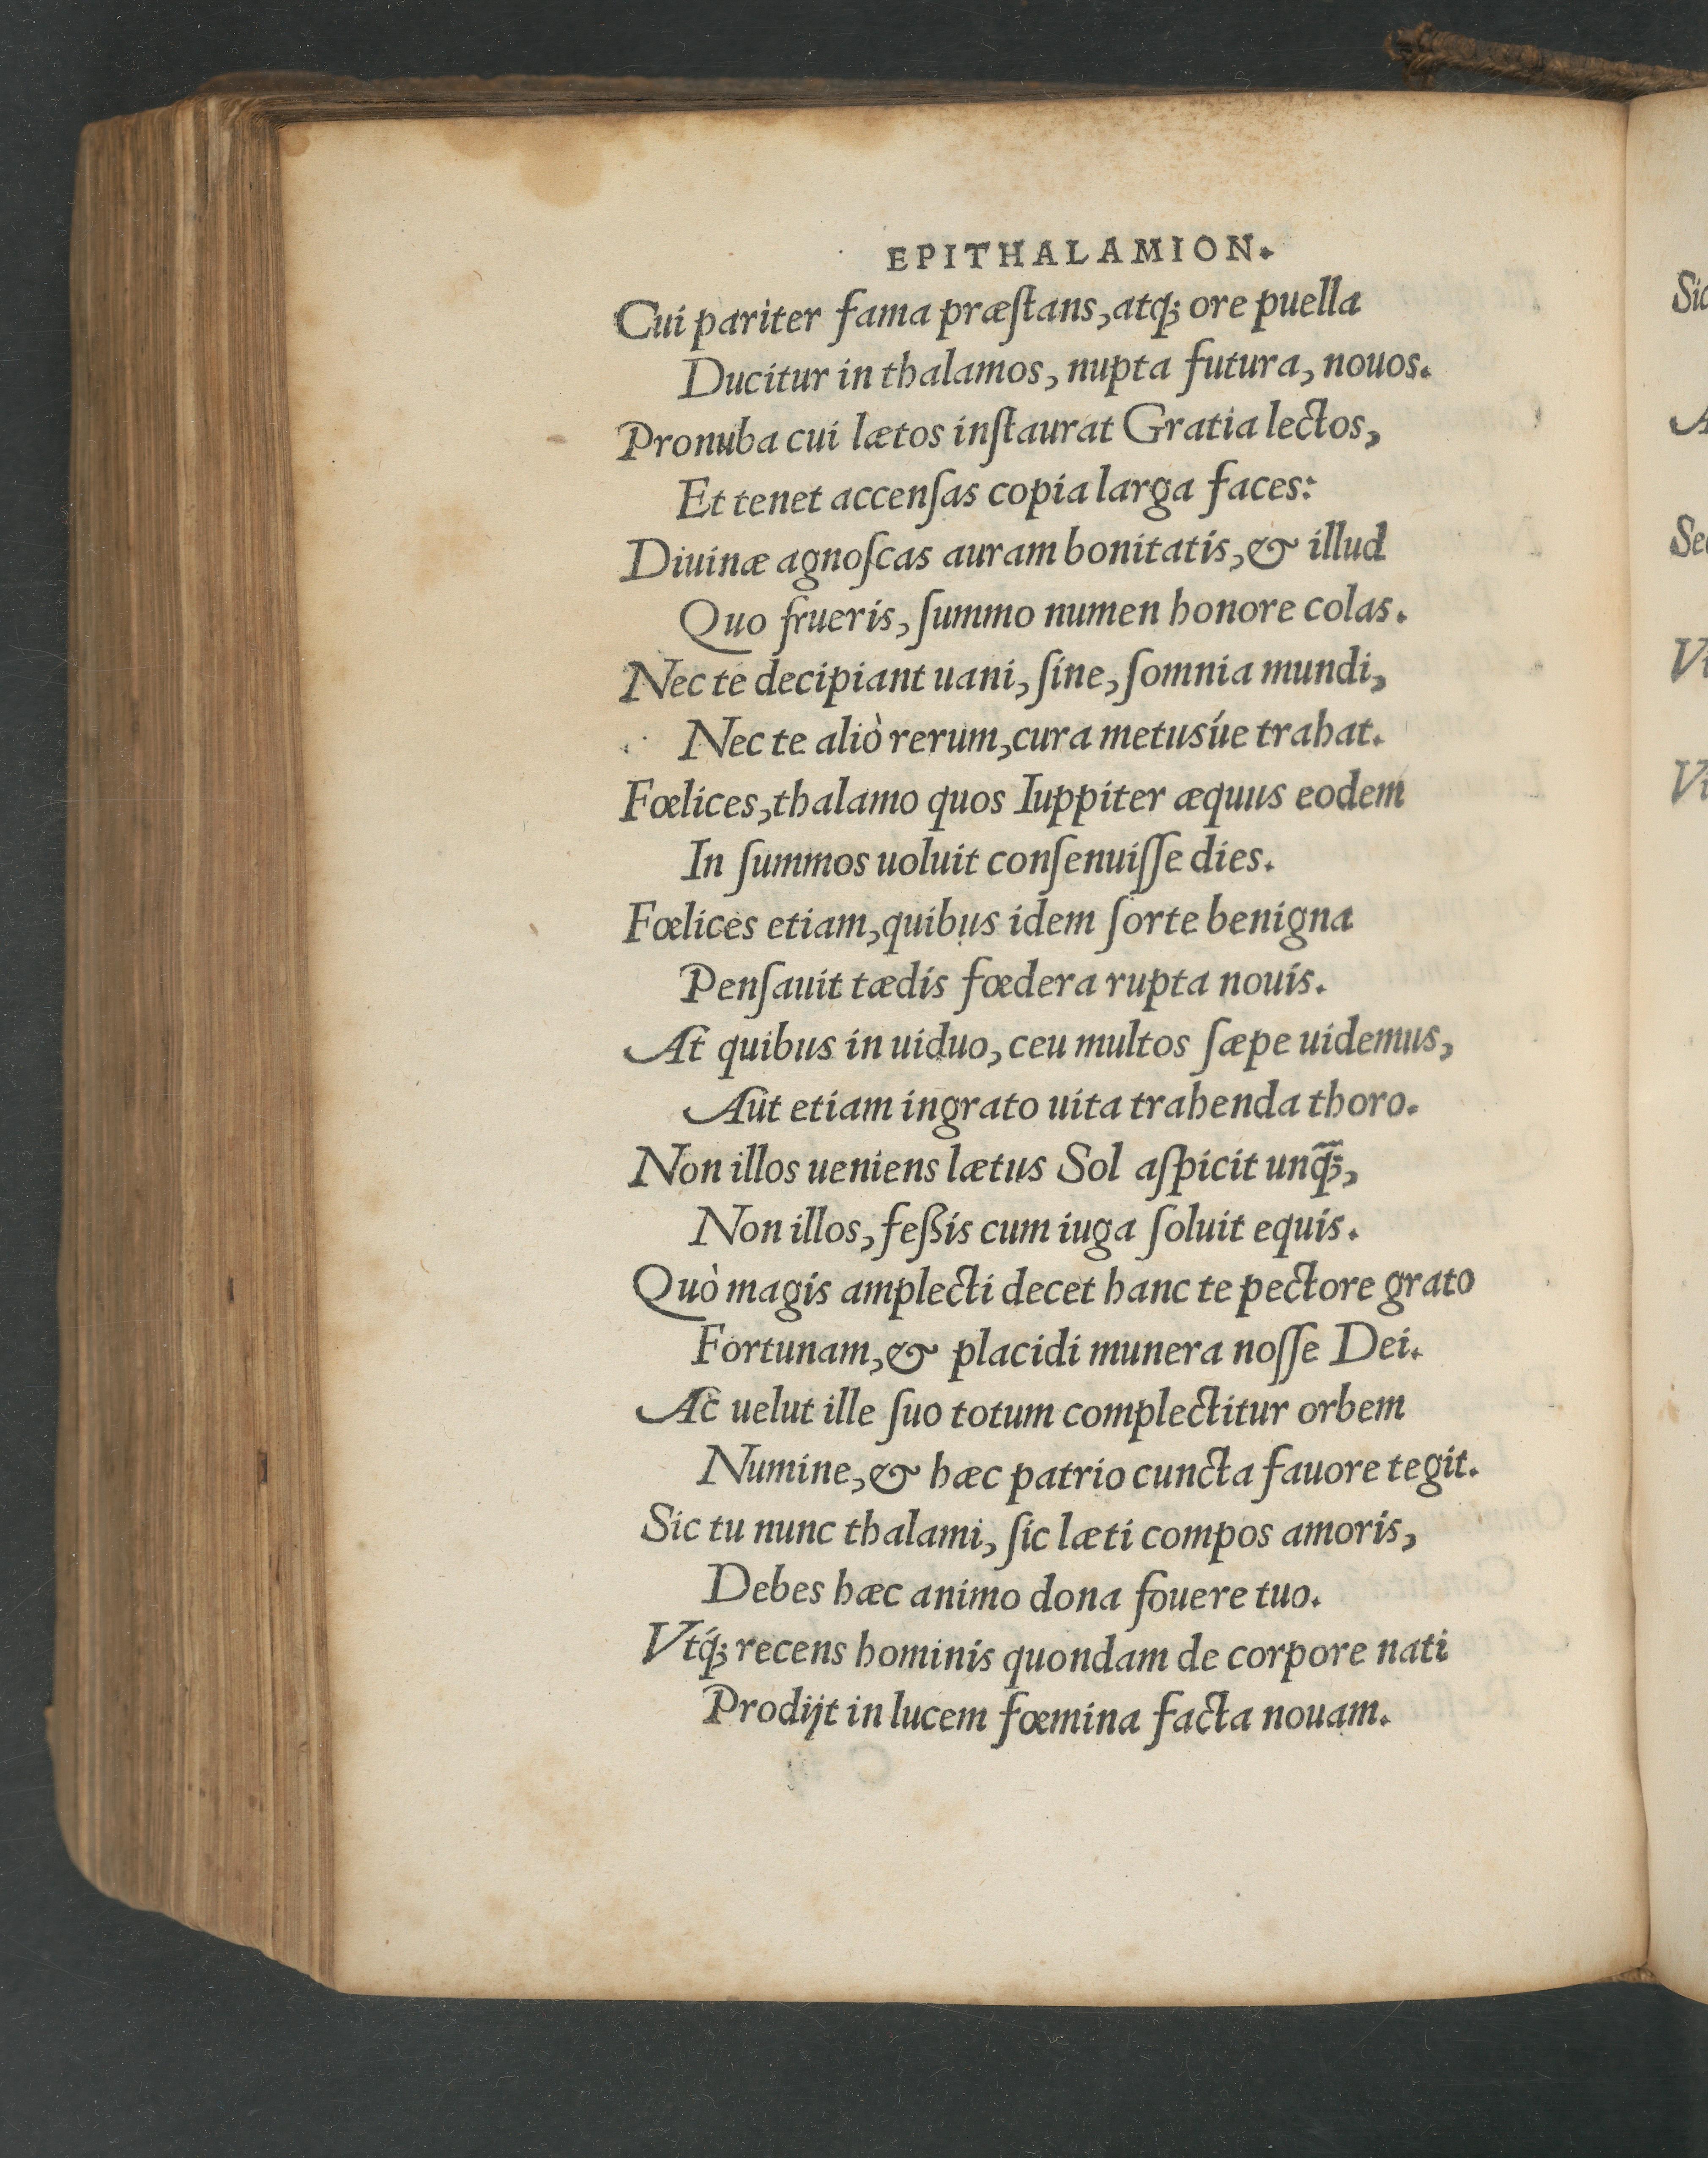 EPITHALAMION.
Cui pariter fama præſtans, atq; ore puella
Ducitur in thalamos, nupta futura, nouos.
Pronuba cui lætos inſtaurat Gratia lectos,
Et tenet accenſas copia larga faces:
Diuinæ agnoſcas auram bonitatis, & illud
Quo frueris, ſummo numen honore colas.
Nec te decipiant uani, ſine, ſomnia mundi,
Nec te aliò rerum, cura metusúe trahat.
Fœlices, thalamo quos Iuppiter æquus eodem
In ſummos uoluit conſenuiſſe dies.
Fœlices etiam, quibus idem ſorte benigna
Penſauit tædis fœdera rupta nouis.
At quibus in uiduo, ceu multos ſæpe uidemus,
Aut etiam ingrato uita trahenda thoro.
Non illos ueniens lætus Sol aſpicit unq̃;,
Non illos, feßis cum iuga ſoluit equis.
Quò magis amplecti decet hanc te pectore grato
Fortunam, & placidi munera noſſe Dei.
Ac uelut ille ſuo totum complectitur orbem
Numine, & hæc patrio cuncta fauore tegit.
Sic tu nunc thalami, ſic læti compos amoris,
Debes hæc animo dona fouere tuo.
Vtq́; recens hominis quondam de corpore nati
Prodijt in lucem fœmina facta nouam.